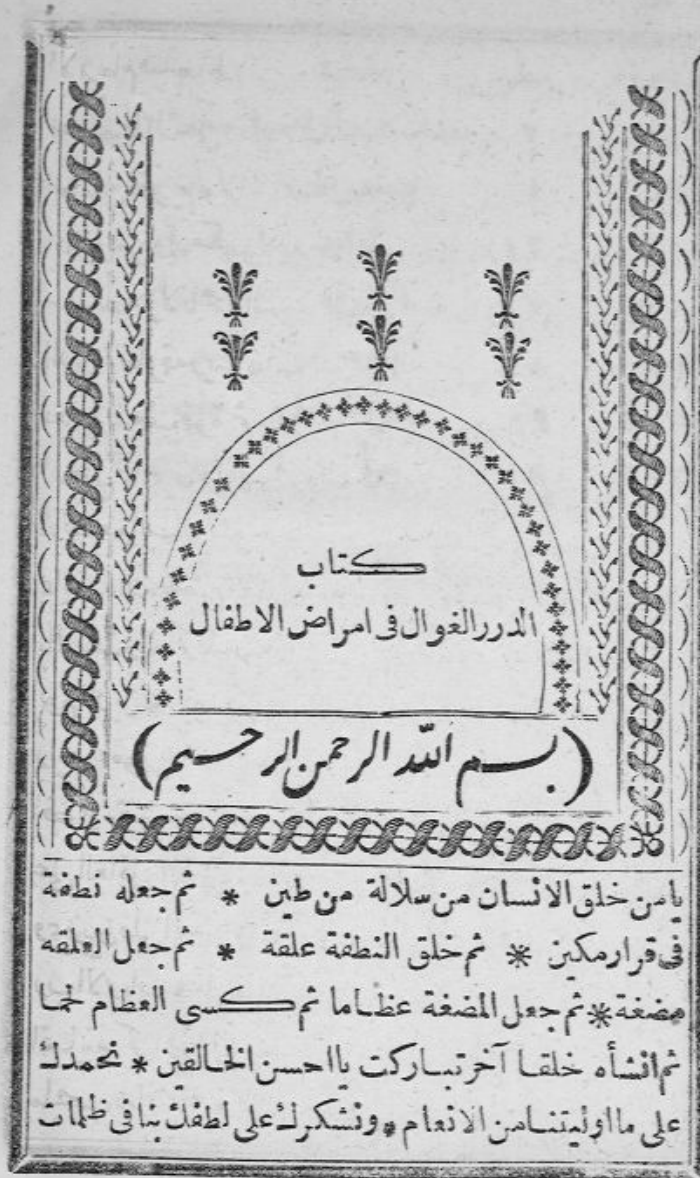 كتاب
الدرر الغوال فى امراض الاطفال
(بسم الله الرحمن الرحيم)
يا من خلق الانسان من سلالة من طين * ثم جعله نطفة
فى قرار مكين * ثم خلق النطفة علقة * ثم جعل العلقه
مضغة * ثم جعل المضغة عظاما ثم كسى العظام لحما
ثم انشأه خلقا آخر تباركت يا احسن الخالقين * نحمدك
على ما اوليتنا من الانعام * ونشكرك على لطفك بنا فى ظلمات